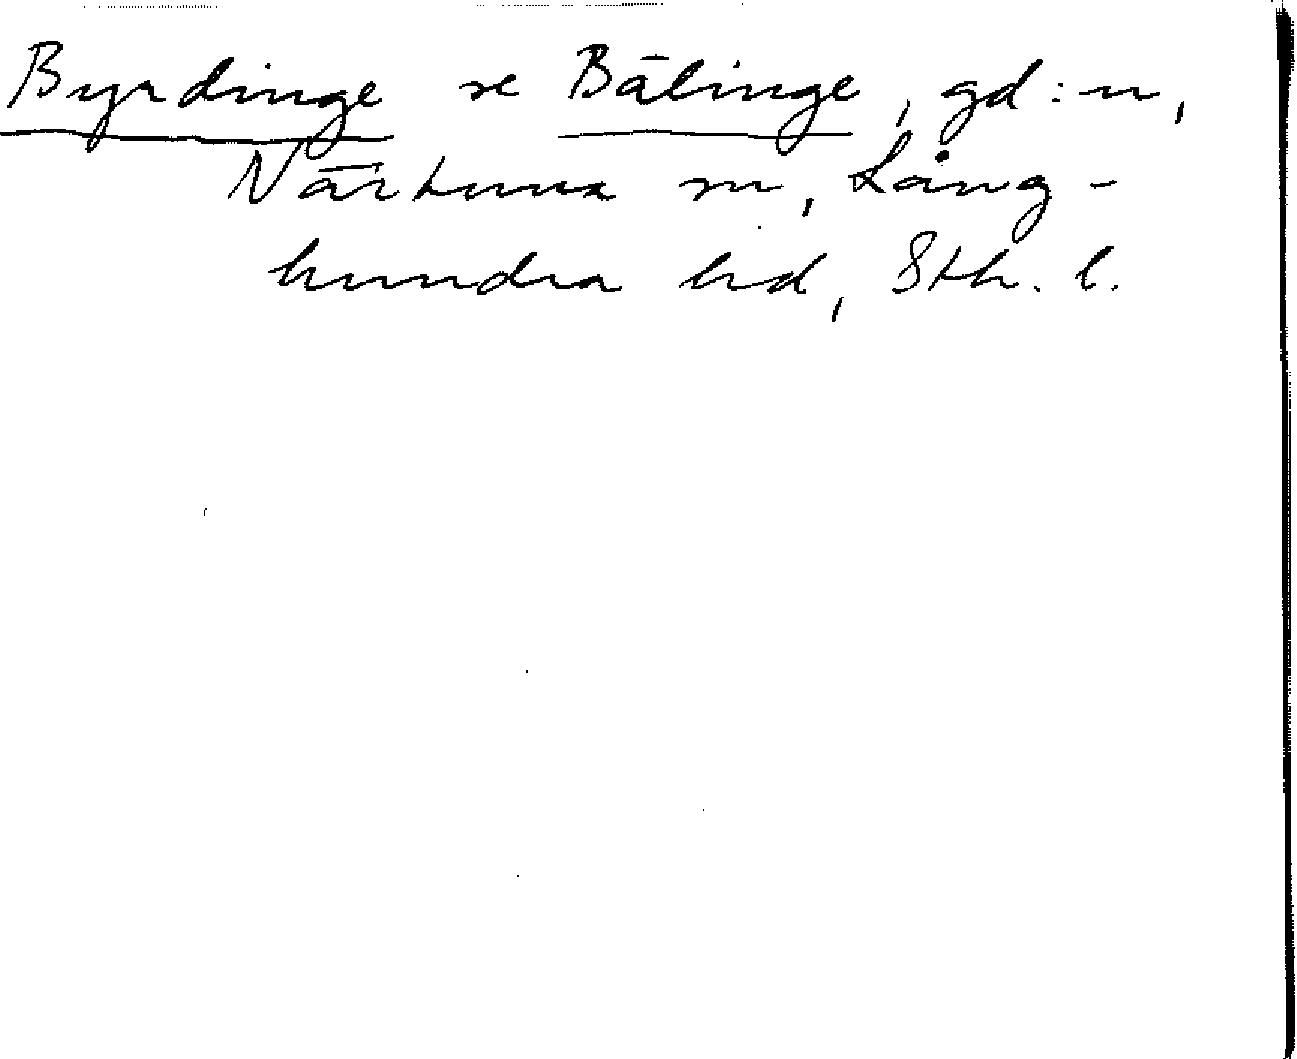 Byrdinge se Bälinge, gd:n,
Närtuna sn, Lång-
hundra hd, Sth. l.